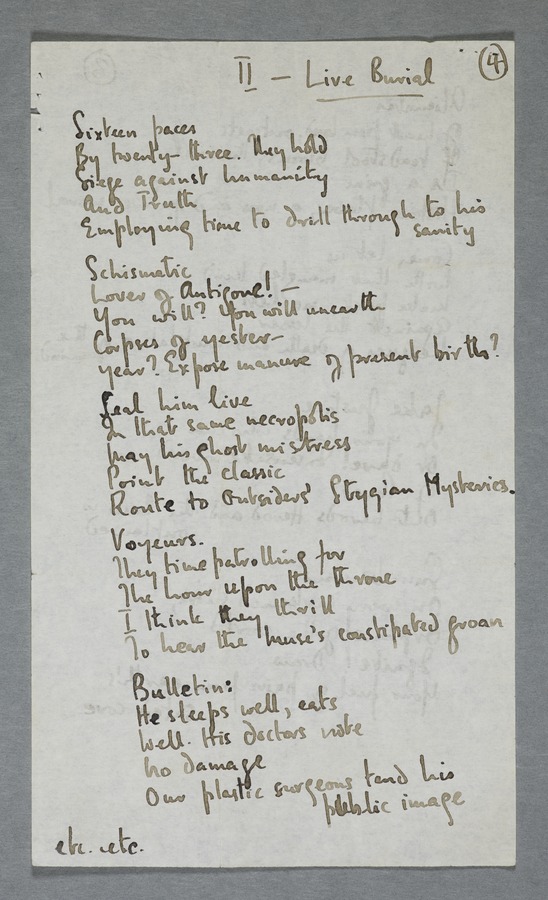 II – Live Burial
4
Sixteen paces
By twenty-three. They hold
Siege against humanity
And Truth
Employing time to drill through to his
sanity
Schismatic
Lover of Antigone! –
You will? You will unearth
Corpses of yester-
year? Expose manure of present births?
Seal him live
In that same necropolis
May his ghost mistress
Point the classic
Route to Outsiders' Stygian Mysteries.
Voyeurs.
They time patrolling for
The hour upon the throne
I think they thrill
To hear the Muse's constipated groan
Bulletin:
He sleeps well, eats
Well. His doctors note
No damage
Our plastic surgeons tend his
public image
etc. etc.